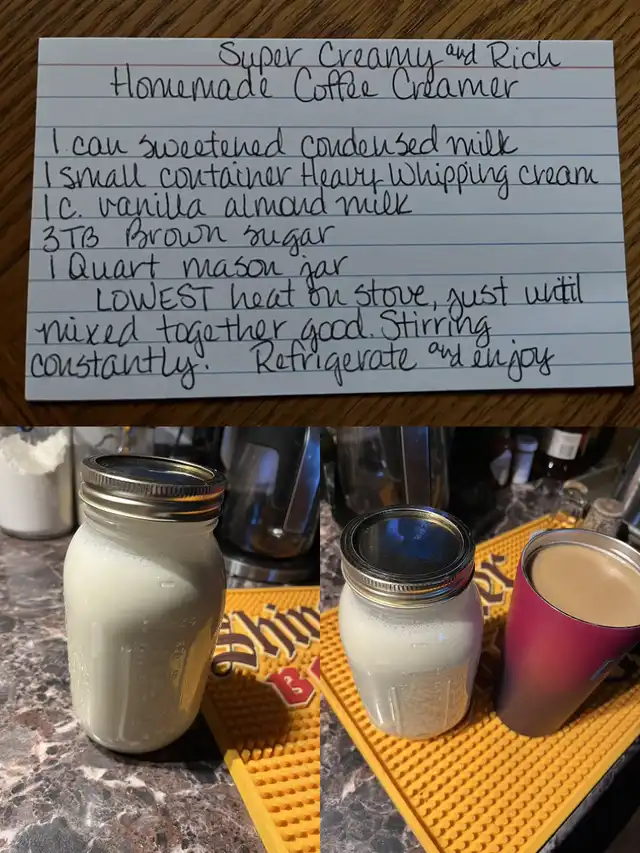 Super Creamy and Rich
Homemade Coffee Creamer
1 can sweetened condensed milk
1 small container Heavy Whipping cream
1 c. vanilla almond milk
3TB Brown sugar
1 Quart mason jar
LOWEST heat on stove, just until
mixed together good. Stirring
constantly. Refrigerate and enjoy
Shiner